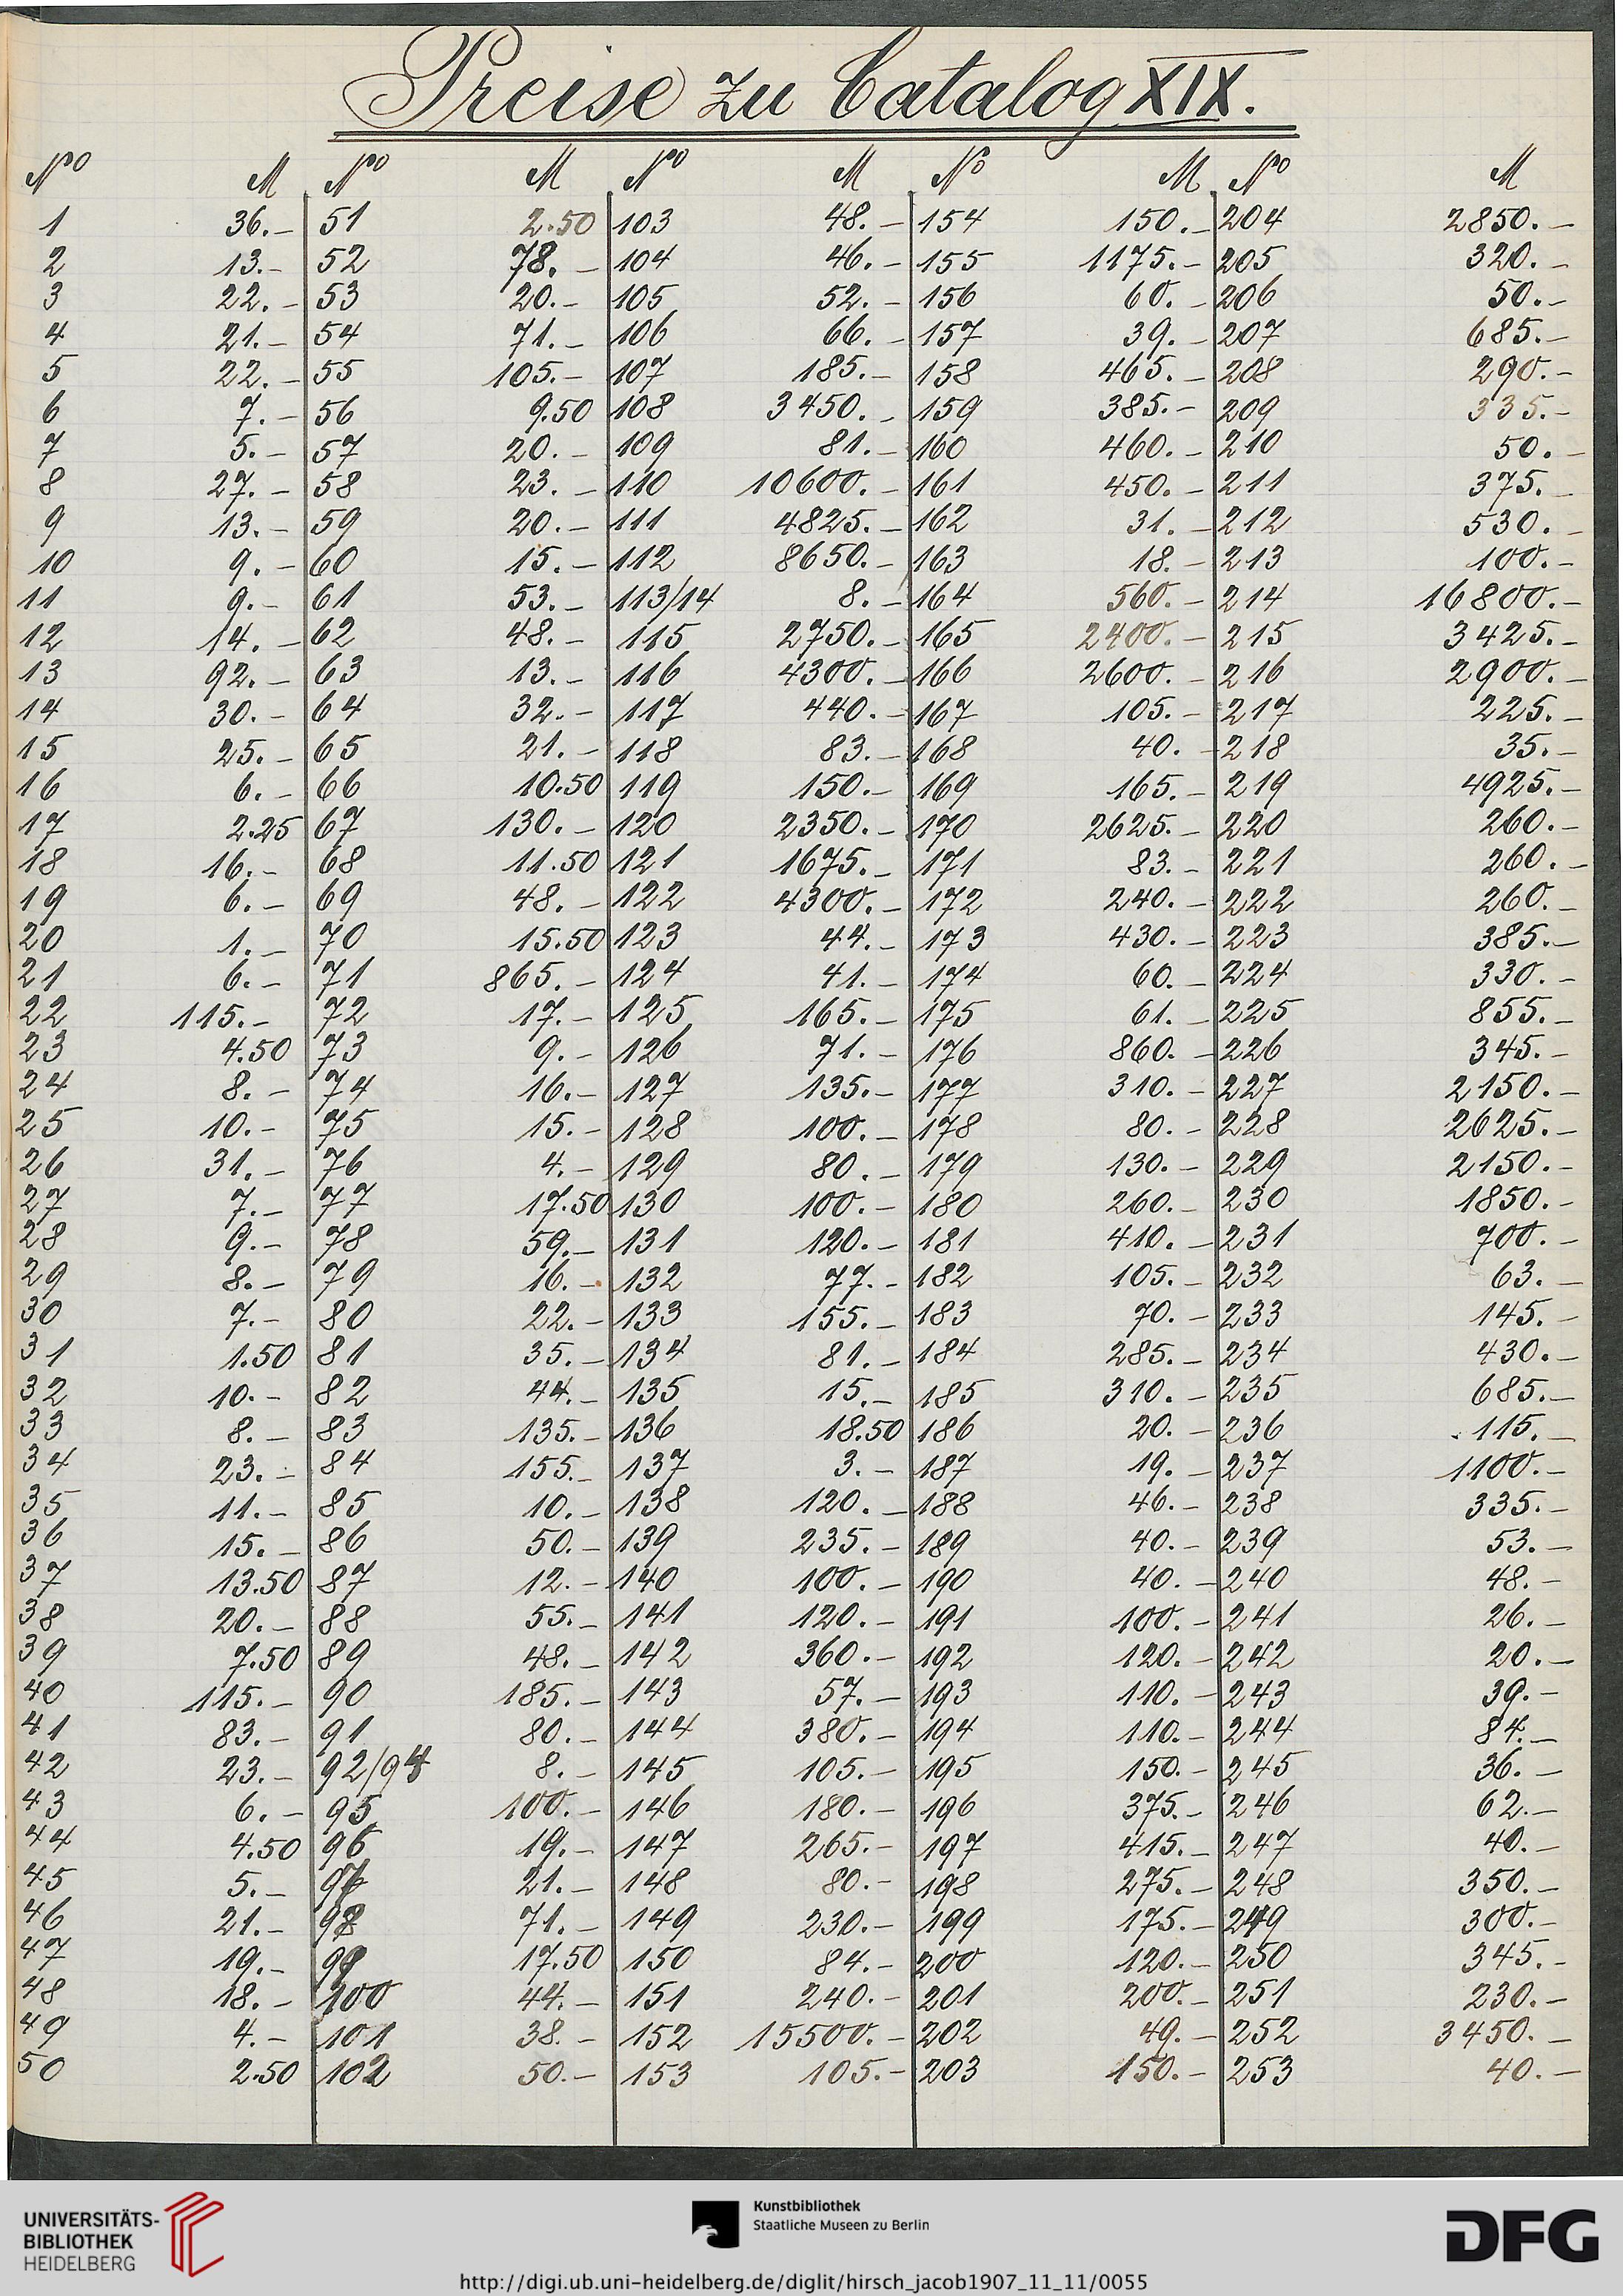 Preise zu Catalog XIX.
No M No M No M No M No M
1 36.– 51 2.50 103 48.– 154 150.– 204 2850.–
2 13.– 52 78.– 104 46.– 155 1175.– 205 320.–
3 22.– 53 20.– 105 52.– 156 60.– 206 50.–
4 21.– 54 71.– 106 66.– 157 39.– 207 685.–
5 22.– 55 105.– 107 185.– 158 465.– 208 290.–
6 7.– 56 9.50 108 3450.– 159 385.– 209 335.–
7 5.– 57 20.– 109 81.– 160 460.– 210 50.–
8 27.– 58 23.– 110 10600.– 161 450.– 211 375.–
9 13.– 59 20.– 111 4825.– 162 31.– 212 530.–
10 9.– 60 15.– 112 8650.– 163 18.– 213 100.–
11 9.– 61 53.– 113/14 8.– 164 560.– 214 16800.–
12 14.– 62 48.– 115 2750.– 165 2400.– 215 3425.–
13 92.– 63 13.– 116 4300.– 166 2600.– 216 2900.–
14 30.– 64 32.– 117 440.– 167 105.– 217 225.–
15 25.– 65 21.– 118 83.– 168 40.– 218 35.–
16 6.– 66 10.50 119 150.– 169 165.– 219 4925.–
17 2.25 67 130.– 120 2350.– 170 2625.– 220 260.–
18 16.– 68 11.50 121 1675.– 171 83.– 221 260.–
19 6.– 69 48.– 122 4300.– 172 240.– 222 260.–
20 1.– 70 15.50 123 44.– 173 430.– 223 385.–
21 6.– 71 865.– 124 41.– 174 60.– 224 330.–
22 115.– 72 17.– 125 165.– 175 61.– 225 855.–
23 4.50 73 9.– 126 71.– 176 860.– 226 345.–
24 8.– 74 16.– 127 135.– 177 310.– 227 2150.–
25 10.– 75 15.– 128 100.– 178 80.– 228 2625.–
26 31.– 76 4.– 129 80.– 179 130.– 229 2150.–
27 7.– 77 17.50 130 100.– 180 260.– 230 1850.–
28 9.– 78 59.– 131 120.– 181 410.– 231 700.–
29 8.– 79 16.– 132 77.– 182 105.– 232 63.–
30 7.– 80 22.– 133 155.– 183 70.– 233 145.–
31 1.50 81 35.– 134 81.– 184 285.– 234 430.–
32 10.– 82 44.– 135 15.– 185 310.– 235 685.–
33 8.– 83 135.– 136 18.50 186 20.– 236 115.–
34 23.– 84 155.– 137 3.– 187 19.– 237 1100.–
35 11.– 85 10.– 138 120.– 188 46.– 238 335.–
36 15.– 86 50.– 139 235.– 189 40.– 239 53.–
37 13.50 87 12.– 140 100.– 190 40.– 240 48.–
38 20.– 88 55.– 141 120.– 191 100.– 241 26.–
39 7.50 89 48.– 142 360.– 192 120.– 242 20.–
40 115.– 90 185.– 143 57.– 193 110.– 243 39.–
41 83.– 91 80.– 144 380.– 194 110.– 244 84.–
42 23.– 92/94 8.– 145 105.– 195 150.– 245 36.–
43 6.– 95 100.– 146 180.– 196 375.– 246 62.–
44 4.50 96 19.– 147 265.– 197 415.– 247 40.–
45 5.– 97 21.– 148 80.– 198 275.– 248 350.–
46 21.– 98 71.– 149 230.– 199 175.– 249 300.–
47 19.– 99 17.50 150 84.– 200 120.– 250 345.–
48 18.– 100 44.– 151 240.– 201 200.– 251 230.–
49 4.– 101 38.– 152 15500.– 202 49.– 252 3450.–
50 2.50 102 50.– 153 105.– 203 150.– 253 40.–
UNIVERSITÄTS-
BIBLIOTHEK
HEIDELBERG
Kunstbibliothek
Staatliche Museen zu Berlin
DFG
http://digi.ub.uni-heidelberg.de/diglit/hirsch_jacob1907_11_11/0055